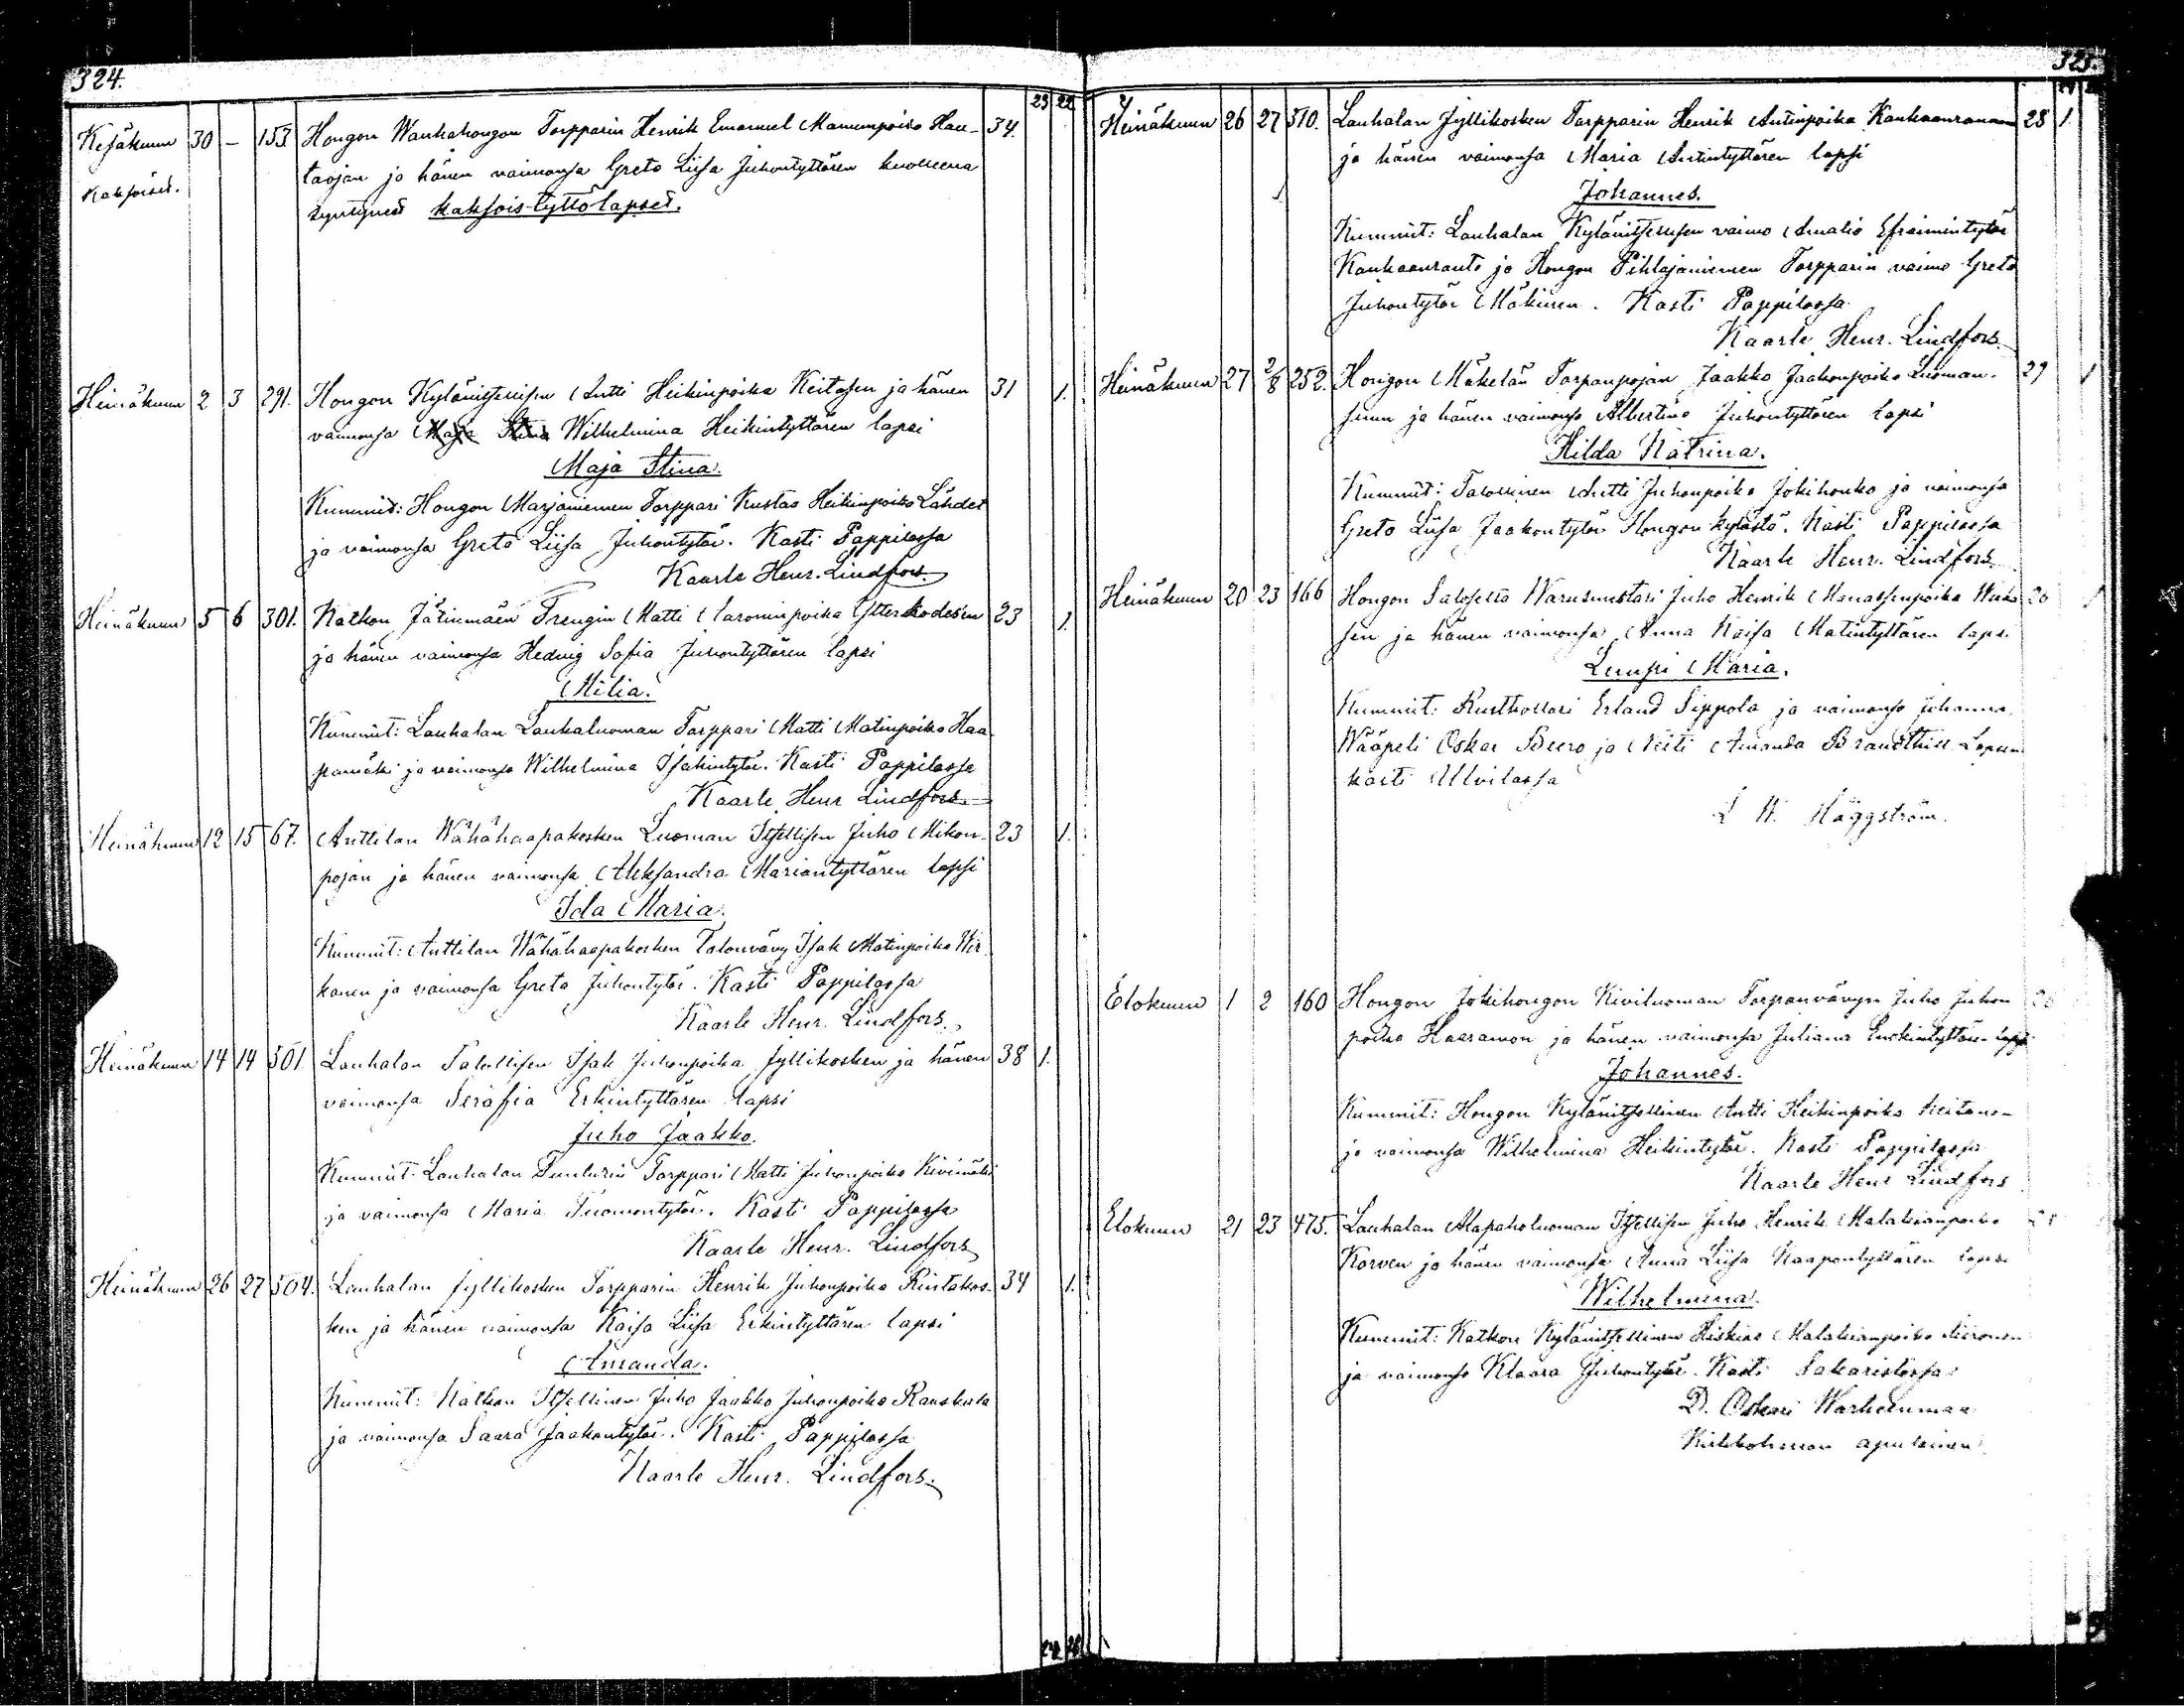 324.
23 22
Kesäkuun 30 – 153 Hongon Wanhahongon Torpparin Henrik Emanuel Manunpoika Hau- 34.
Kaksoiset. taojan ja hänen vaimonsa Greta Liisa Juhontyttären kuolleena
syntyneet kaksois-tyttölapset.
Heinäkuun 2 3 291. Hongon Kylänitsellisen Antti Heikinpoika Keitasen ja hänen 31 1.
vaimonsa Maja Stina Wilhelmina Heikintyttären lapsi
Maja Stina.
Kummit: Hongon Marjaniemen Torppari Kustaa Heikinpoika Lähdet
ja vaimonsa Greta Liisa Juhontytär. Kasti Pappilassa
Kaarle Henr. Lindfors.
Heinäkuun 5 6 301. Katkon Trengin Matti 23 1.
ja hänen vaimonsa Hedvig Sofia Juhontyttären lapsi
Milia.
Kummit: Lauhalan Lauhaluoman Torppari Matti Matinpoika Haa-
pamäki ja vaimonsa Wilhelmina Isakintytär. Kasti Pappilassa
Kaarle Henr Lindfors.
Heinäkuun 12 15 67. Anttilan Wähähaapakosken Luoman Itsellisen Juho Mikon- 23 1.
pojan ja hänen vaimonsa Aleksandra Mariantyttären lapsi
Ida Maria.
Kummit: Anttilan Wähähaapakosken Talonvävy Isak Matinpoika Wir-
kanen ja vaimonsa Greta Juhontytär. Kasti Pappilassa
Kaarle Henr. Lindfors.
Heinäkuun 14 14 501 Lauhalan Talollisen Isak Juhonpoika Jyllikosken ja hänen 38 1.
vaimonsa Serafia Erkintyttären lapsi
Juho Jaakko.
Kummit: Lauhalan Torppari Matti Juhonpoika Kivimäki
ja vaimonsa Maria Tuomontytär. Kasti Pappilassa
Kaarle Henr. Lindfors
Heinäkuun 26 27 504. Lauhalan Jyllikosken Torpparin Henrik Juhonpoika Rintakos- 34 1.
ken ja hänen vaimonsa Kaisa Liisa Erkintyttären lapsi
Amanda.
Kummit: Katkon Itsellinen Juho Jaakko Juhonpoika Rauskala
ja vaimonsa Saara Jaakontytär. Kasti Pappilassa
Kaarle Henr. Lindfors.
325.
Heinäkuun 26 27 510. Lauhalan Jyllikosken Torpparin Henrik Antinpoika Kankaanrannan 28 1.
ja hänen vaimonsa Maria Antintyttären lapsi
Johannes.
Kummit: Lauhalan Kylänitsellisen vaimo Amalia Efraimintytär
Kankaanranta ja Hongon Pihlajaniemen Torpparin vaimo Greta
Juhontytär Mäkinen. Kasti Pappilassa.
Kaarle Henr. Lindfors
Heinäkuun 27 2/8 252. Hongon Mäkelän Torpanpojan Jaakko Jaakonpoika Luoman- 29 1
ja hänen vaimonsa Albertina Juhontyttären lapsi
Hilda Katrina.
Kummit: Talollinen Antti Juhonpoika Jokihonko ja vaimonsa
Greta Liisa Jaakontytär Hongon kylästä. Kasti Pappilassa
Kaarle Henr. Lindfors
Heinäkuun 20 23 166 Hongon Varusmestari Juho Henrik Manassenpoika
sen ja hänen vaimonsa Anna Kaisa Matintyttären lapsi
Lempi Maria.
Kummit: Rusthollari Erland Sippola ja vaimonsa Johanna,
Wääpeli Oskar ja Neiti Amanda Lapsen
kasti Ulvilassa
L W. Häggström.
Elokuun 1 2 160 Hongon Jokihongon Kiviluoman Torpanvävyn Juho Juhon
poika ja hänen vaimonsa Juliana lapsi
Johannes.
Kummit: Hongon Kylänitsellinen Antti Heikinpoika Keitanen
ja vaimonsa Wilhelmina Heikintytär. Kasti Pappilassa
Kaarle Henr Lindfors
Elokuun 21 23 475. Lauhalan Alapaholuoman Itsellisen Juho Henrik Malakianpoika
Korven ja hänen vaimonsa Anna Liisa Kaapontyttären lapsi
Wilhelmina.
Kummit: Katkon Kylänitsellinen Hiskias Malakianpoika
ja vaimonsa Klaara Juhontytär. Kasti Sakaristossa
D. Oskari Warheenmaa
Kirkkoherran apulainen.